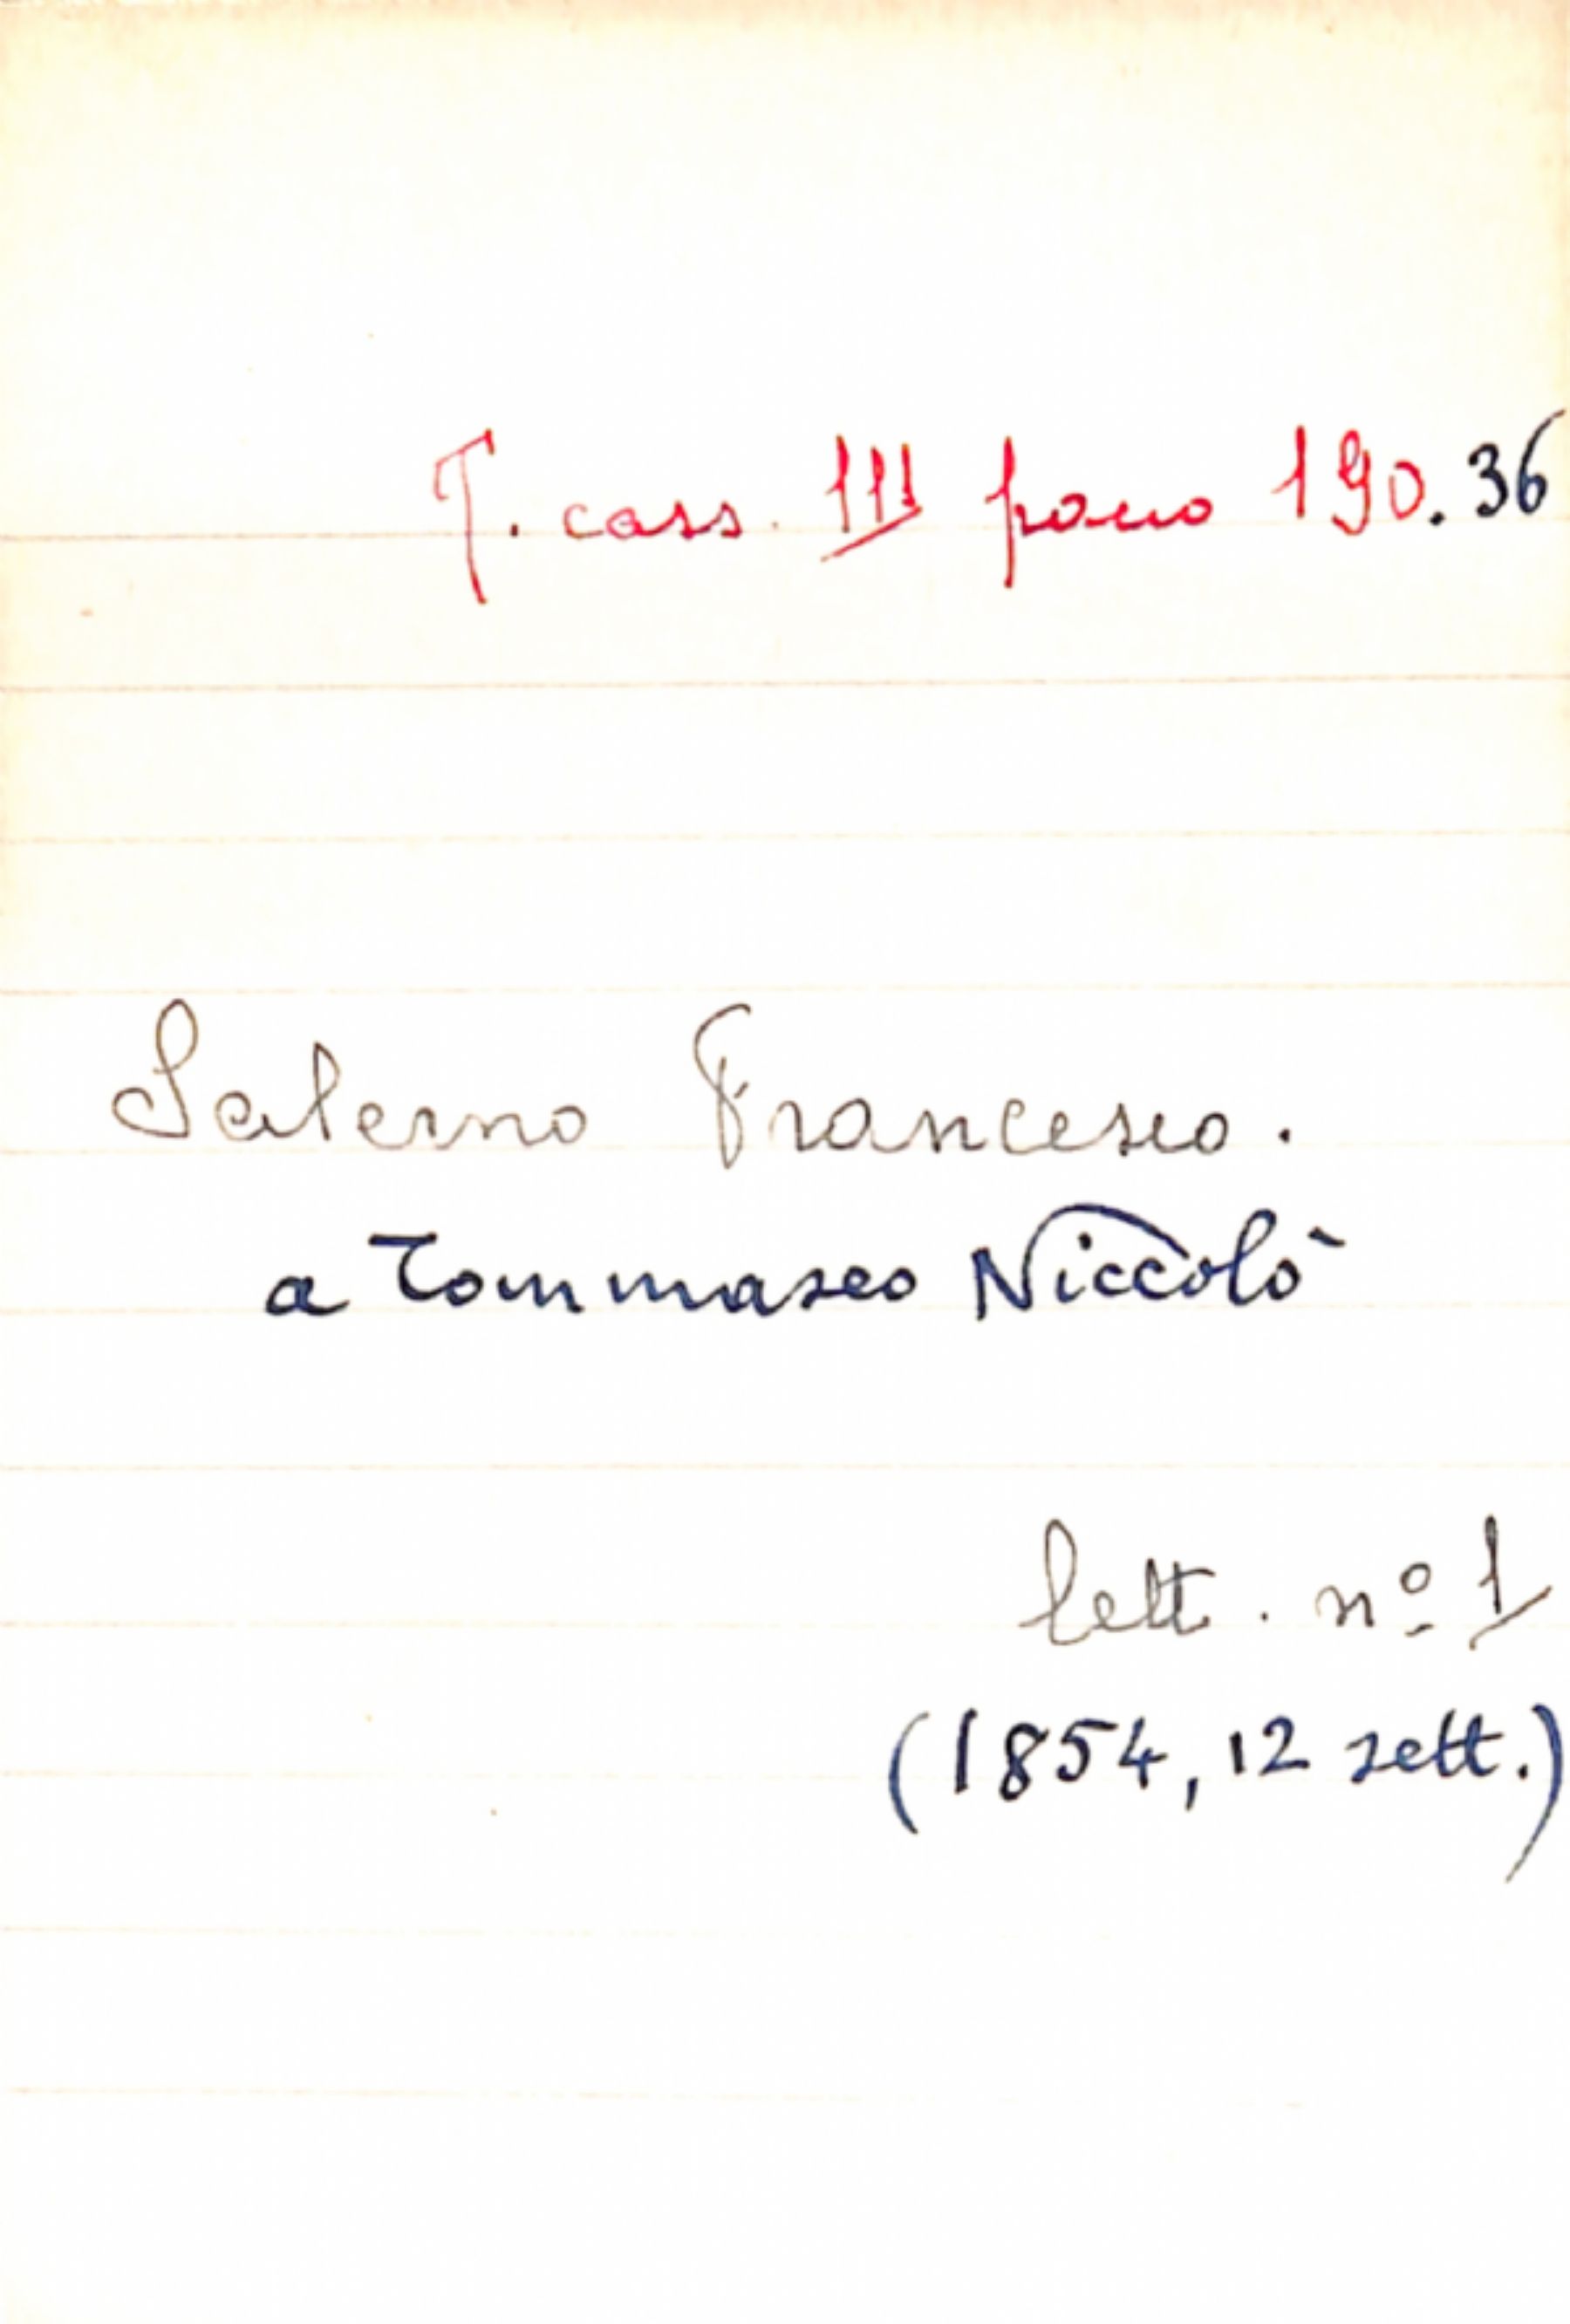 T. cass. III pacco 190.36
Salerno Francesco.
a Tommaseo Niccolò
lett. nº 1
(1854, 12 sett.)